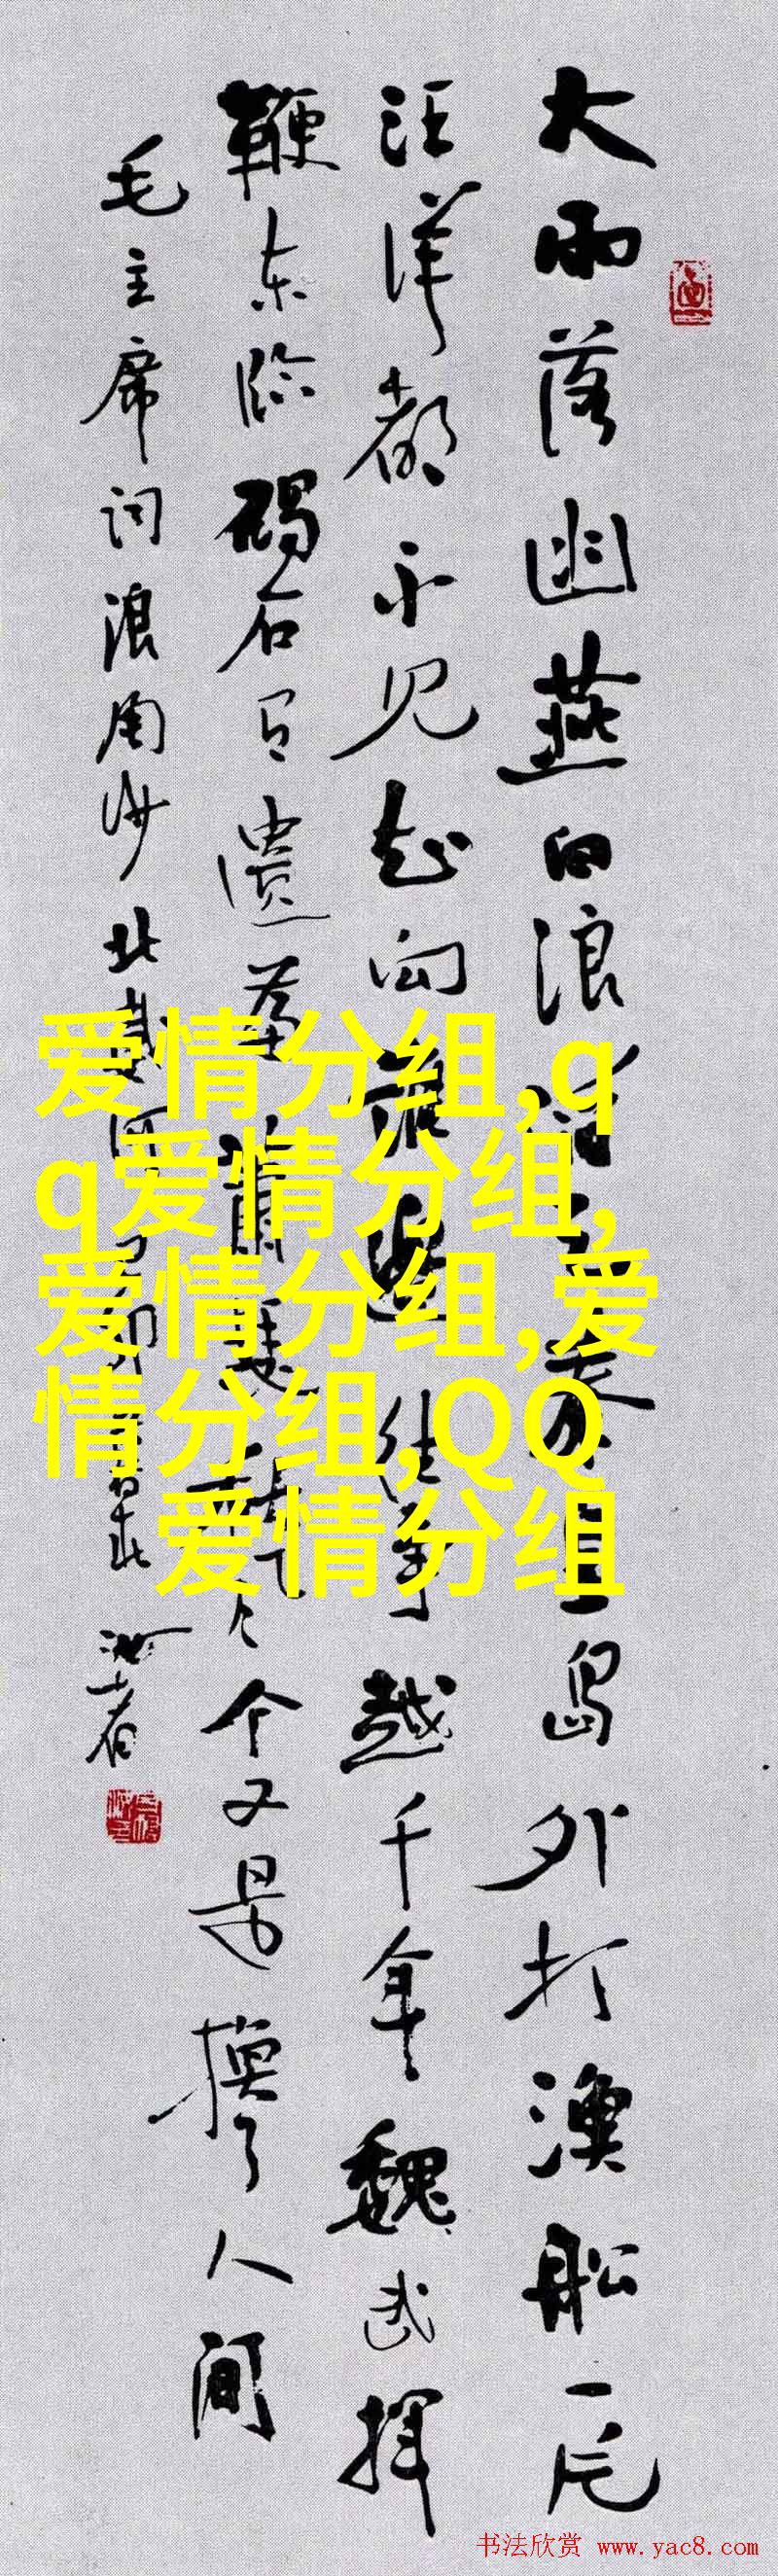 大雨落幽燕白浪滔天秦皇岛外打渔船一片
汪洋都不见知向谁边往事越千年魏武挥
鞭东临碣石有遗篇萧瑟秋风今又是换了人间
毛主席词浪淘沙北戴河
爱情分组,q
q爱情分组,
爱情分组,爱
情分组,QQ
爱情分组
书法欣赏 www.yac8.com